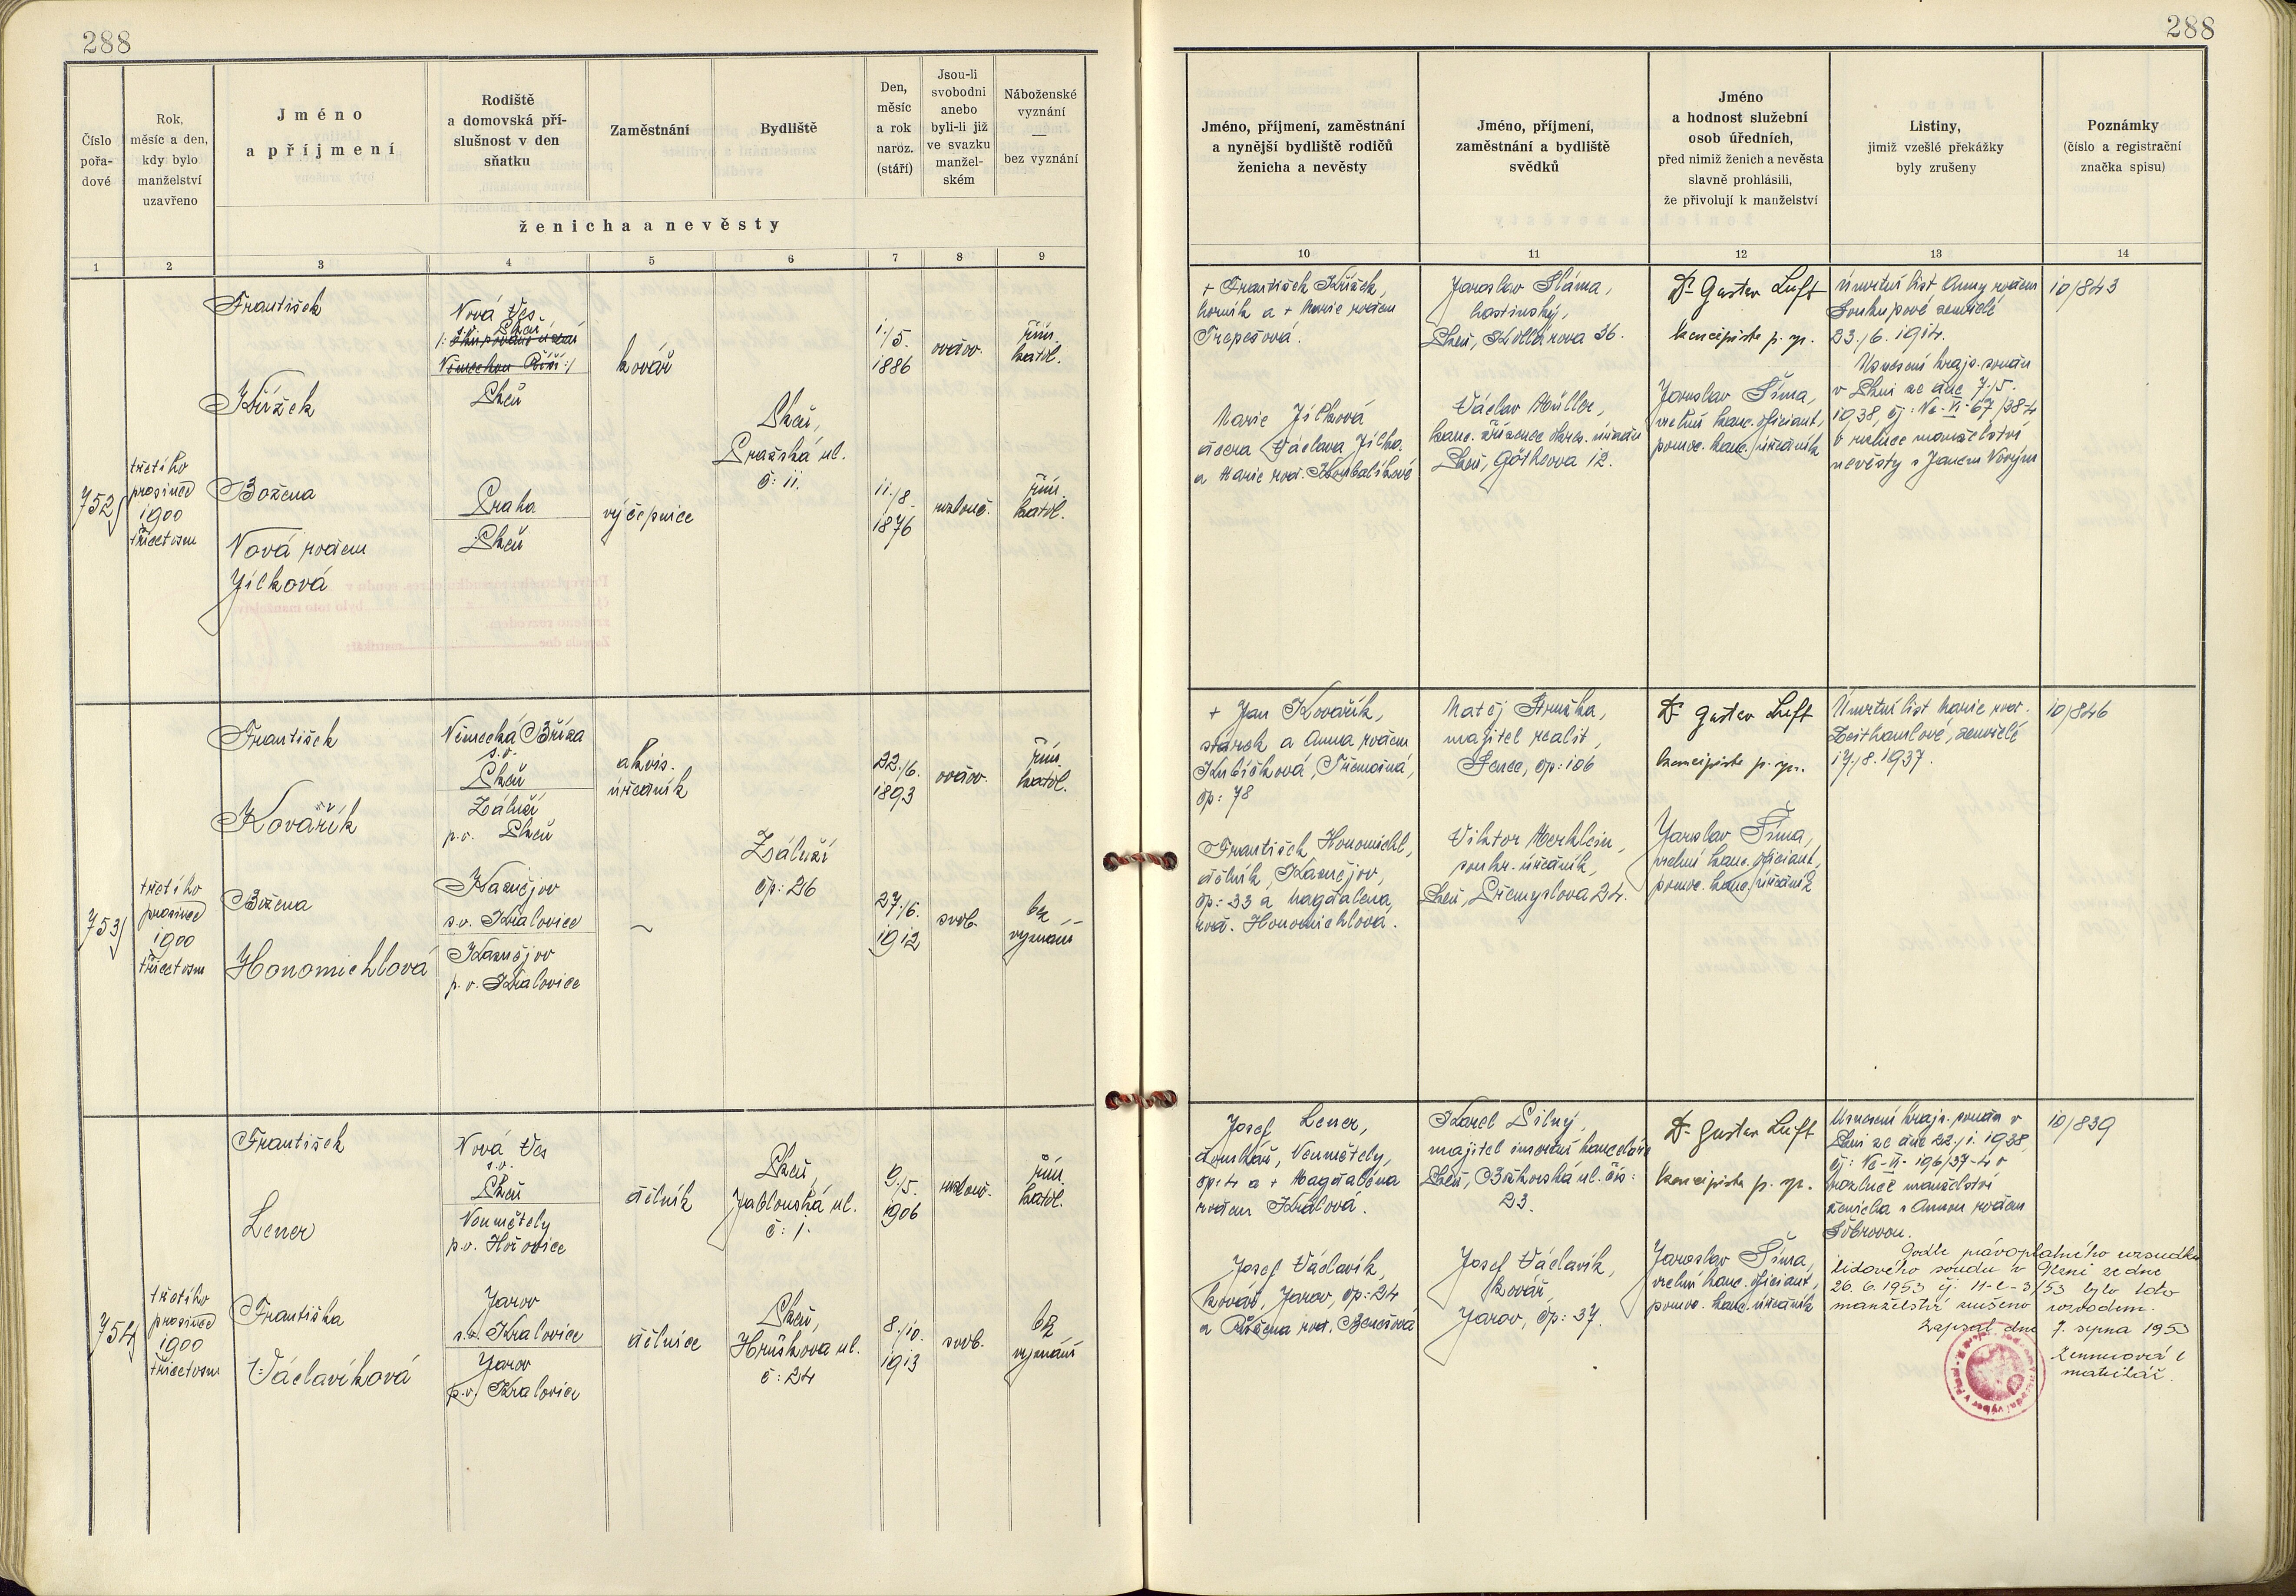 288
288
Číslo pořa-dové
Rok, měsíc a den, kdy bylo manželství uzavřeno
Jméno a příjmení
Rodiště a domovská pří-slušnost v den sňatku
Zaměstnání
Bydliště
Den, měsíc a rok naroz. (stáří)
Jsou-li svobodni anebo byli-li již ve svazku manžel-ském
Náboženské vyznání — bez vyznání
ženicha a nevěsty
1 2 3 4 5 6 7 8 9
Jméno, příjmení, zaměstnání a nynější bydliště rodičů ženicha a nevěsty
Jméno, příjmení, zaměstnání a bydliště svědků
Jméno a hodnost služební osob úředních, před nimiž ženich a nevěsta slavně prohlásili, že přivolují k manželství
Listiny, jimiž vzešlé překážky byly zrušeny
Poznámky (číslo a registrační značka spisu)
10 11 12 13 14
752
třetího
prosince
1900
třicetosm
František
Křížek
Božena
Nová rodem
Jílková
Nová Ves
Plzeň
Plzeň
Praha
Plzeň
kovář
výčepnice
Plzeň,
Pražská ul.
č: 11.
1./5.
1886
ovdov.
řím.
katol.
11./8.
1876
rozlouč.
řím.
katol.
+ František Křížek,
horník a + Marie rodem
Trepešová.
Marie Jílková
dcera Václava Jílka
a Marie roz.
Jaroslav Sláma,
hostinský,
Plzeň, Kollárova 36.
Václav Müller,
kanc. zřízenec okres. úřadu
Plzeň, Götheova 12.
Dr Gustav Luft
koncipista p. spr.
Jaroslav Šíma,
vrchní kanc. oficiant,
pomoc. kanc. úředník
Úmrtní list Anny rodem
Soukupové zemřelé
23./6. 1914.
Usnesení krajs. soudu
v Plzni ze dne 7./5.
1938, čj: Nc-VI-67/38-4
o rozluce manželství
nevěsty s Janem Novým
10/843
753
třetího
prosince
1900
třicetosm
František
Kovářík
Božena
Honomichlová
Německá Bříza
s.o.
Plzeň
Záluží
p.o. Plzeň
Kaznějov
s.o. Kralovice
Kaznějov
p.o. Kralovice
akvis.
úředník
~
Záluží
čp: 26
22./6.
1893
ovdov.
řím.
katol.
27./6.
1912
svob.
bez
vyznání
+ Jan Kovářík,
a Anna rodem
Kubíčková, Třemošná,
čp: 78
František Honomichl,
dělník, Kaznějov,
čp: 33 a Magdalena,
roz. Honomichlová.
Matěj Hruška,
majitel realit,
Senec, čp: 106
Viktor Merklein,
soukr. úředník,
Plzeň, Přemyslova 24.
Dr Gustav Luft
koncipista p. spr.
Jaroslav Šíma,
vrchní kanc. oficiant,
pomoc. kanc. úředník
Úmrtní list Marie roz.
zemřelé
17./8. 1937.
10/846
754
třetího
prosince
1900
třicetosm
František
Lener
Františka
Václavíková
Nová Ves
s.o.
Plzeň
Neumětely
p.o. Hořovice
Jarov
s.o. Kralovice
Jarov
p.o. Kralovice
dělník
dělnice
Plzeň,
Jablonská ul.
č: 1.
Plzeň,
Hruškova ul.
č: 24
9./5.
1906
rozlouč.
řím.
katol.
8./10.
1913
svob.
bez
vyznání
Josef Lener,
Neumětely,
čp: 4 a + Magdaléna
rodem Králová.
Josef Václavík,
kovář, Jarov, čp: 24
a Růžena roz. Benešová
Karel Silný,
majitel inserční kanceláře
Plzeň, ul. čís:
23.
Josef Václavík,
kovář,
Jarov, čp: 37.
Dr Gustav Luft
koncipista p. spr.
Jaroslav Šíma,
vrchní kanc. oficiant,
pomoc. kanc. úředník
Usnesení krajs. soudu v
Plzni ze dne 22./1. 1938,
čj: Nc-VI-196/37-4 o
rozluce manželství
ženicha s Annou rodem
10/839
Podle právoplatného rozsudku
lidového soudu v Plzni ze dne
26. 6. 1953 čj. 11-c-3/53 bylo toto
manželství zrušeno rozvodem.
Zapsal dne 7. srpna 1953
matrikář.